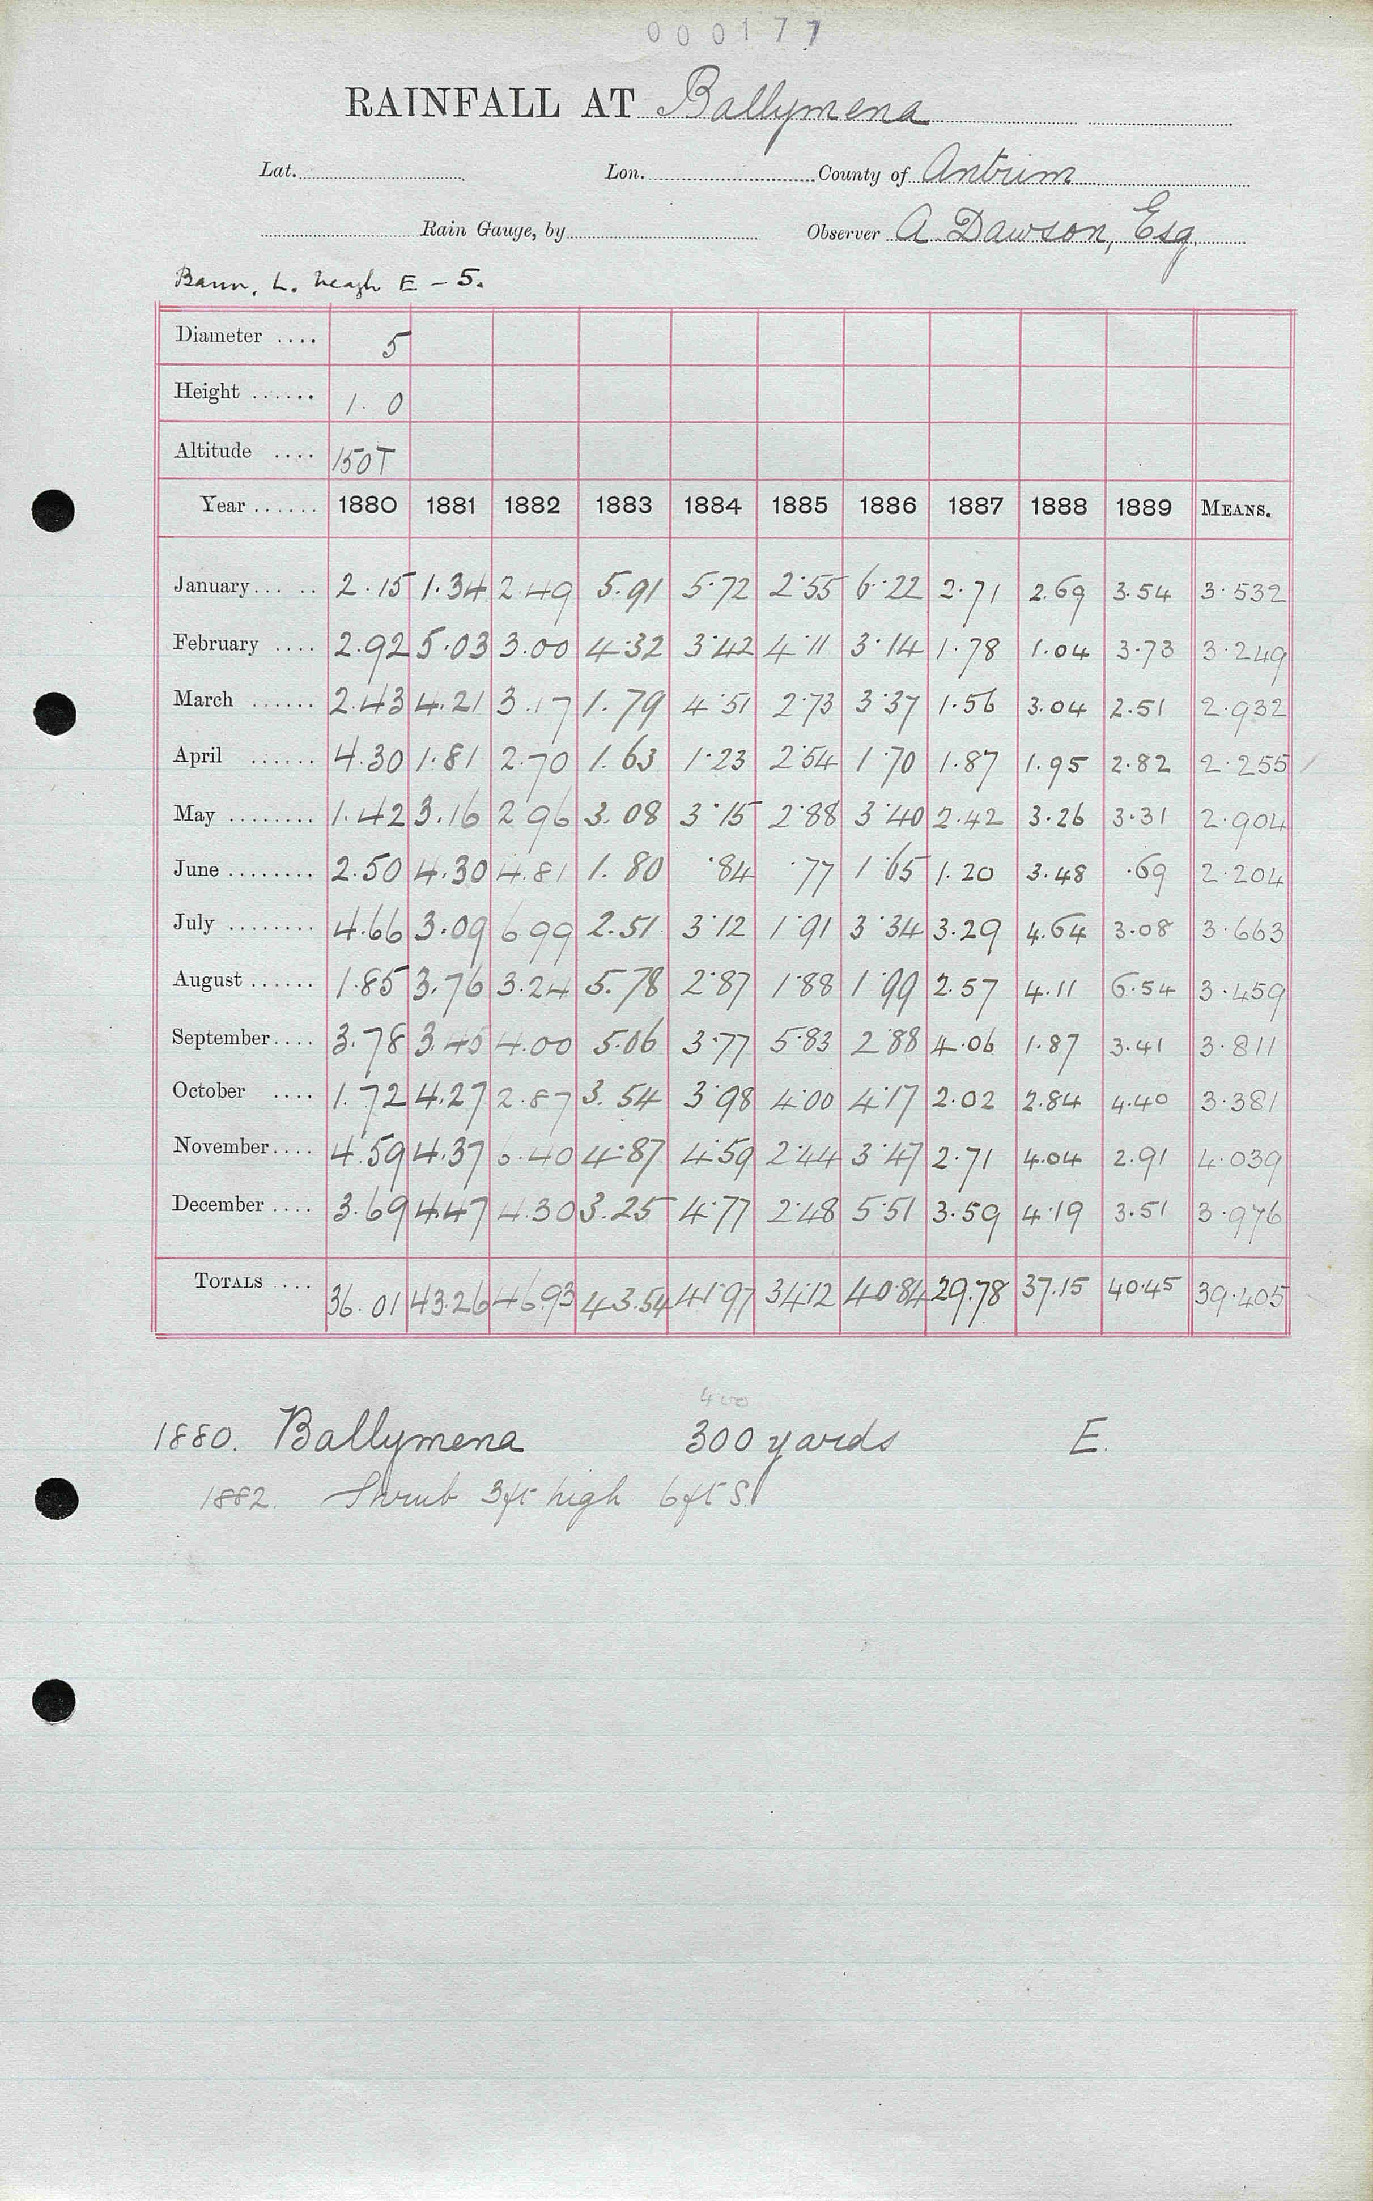 000177
RAINFALL AT Ballymena
Lat. Lon. County of Antrim
Rain Gauge, by Observer A Dawson, Esq
Bann, L. Neagh E - 5.
Diameter .... 5
Height ...... 1. 0
Altitude .... 150T
Year ...... 1880 1881 1882 1883 1884 1885 1886 1887 1888 1889 MEANS.
January... .. 2.15 1.34 2.49 5.91 5.72 2.55 6.22 2.71 2.69 3.54 3.532
February .... 2.92 5.03 3.00 4.32 3.42 4.11 3.14 1.78 1.04 3.73 3.249
March ...... 2.43 4.21 3.17 1.79 4.51 2.73 3.37 1.56 3.04 2.51 2.932
April ...... 4.30 1.81 2.70 1.63 1.23 2.54 1.70 1.87 1.95 2.82 2.255
May ........ 1.42 3.16 2.96 3.08 3.15 2.88 3.40 2.42 3.26 3.31 2.904
June ........ 2.50 4.30 4.81 1.80 .84 .77 1.65 1.20 3.48 .69 2.204
July ........ 4.66 3.09 6.99 2.51 3.12 1.91 3.34 3.29 4.64 3.08 3.663
August ...... 1.85 3.76 3.24 5.78 2.87 1.88 1.99 2.57 4.11 6.54 3.459
September.... 3.78 3.45 4.00 5.06 3.77 5.83 2.88 4.06 1.87 3.41 3.811
October .... 1.72 4.27 2.87 3.54 3.98 4.00 4.17 2.02 2.84 4.40 3.381
November.... 4.59 4.37 6.40 4.87 4.59 2.44 3.47 2.71 4.04 2.91 4.039
December .... 3.69 4.47 4.30 3.25 4.77 2.48 5.51 3.59 4.19 3.51 3.976
TOTALS .... 36.01 43.26 46.93 43.54 41.97 34.12 40.84 29.78 37.15 40.45 39.405
400
1880. Ballymena 300 yards E.
1882. Shrub 3ft high 6ft S.